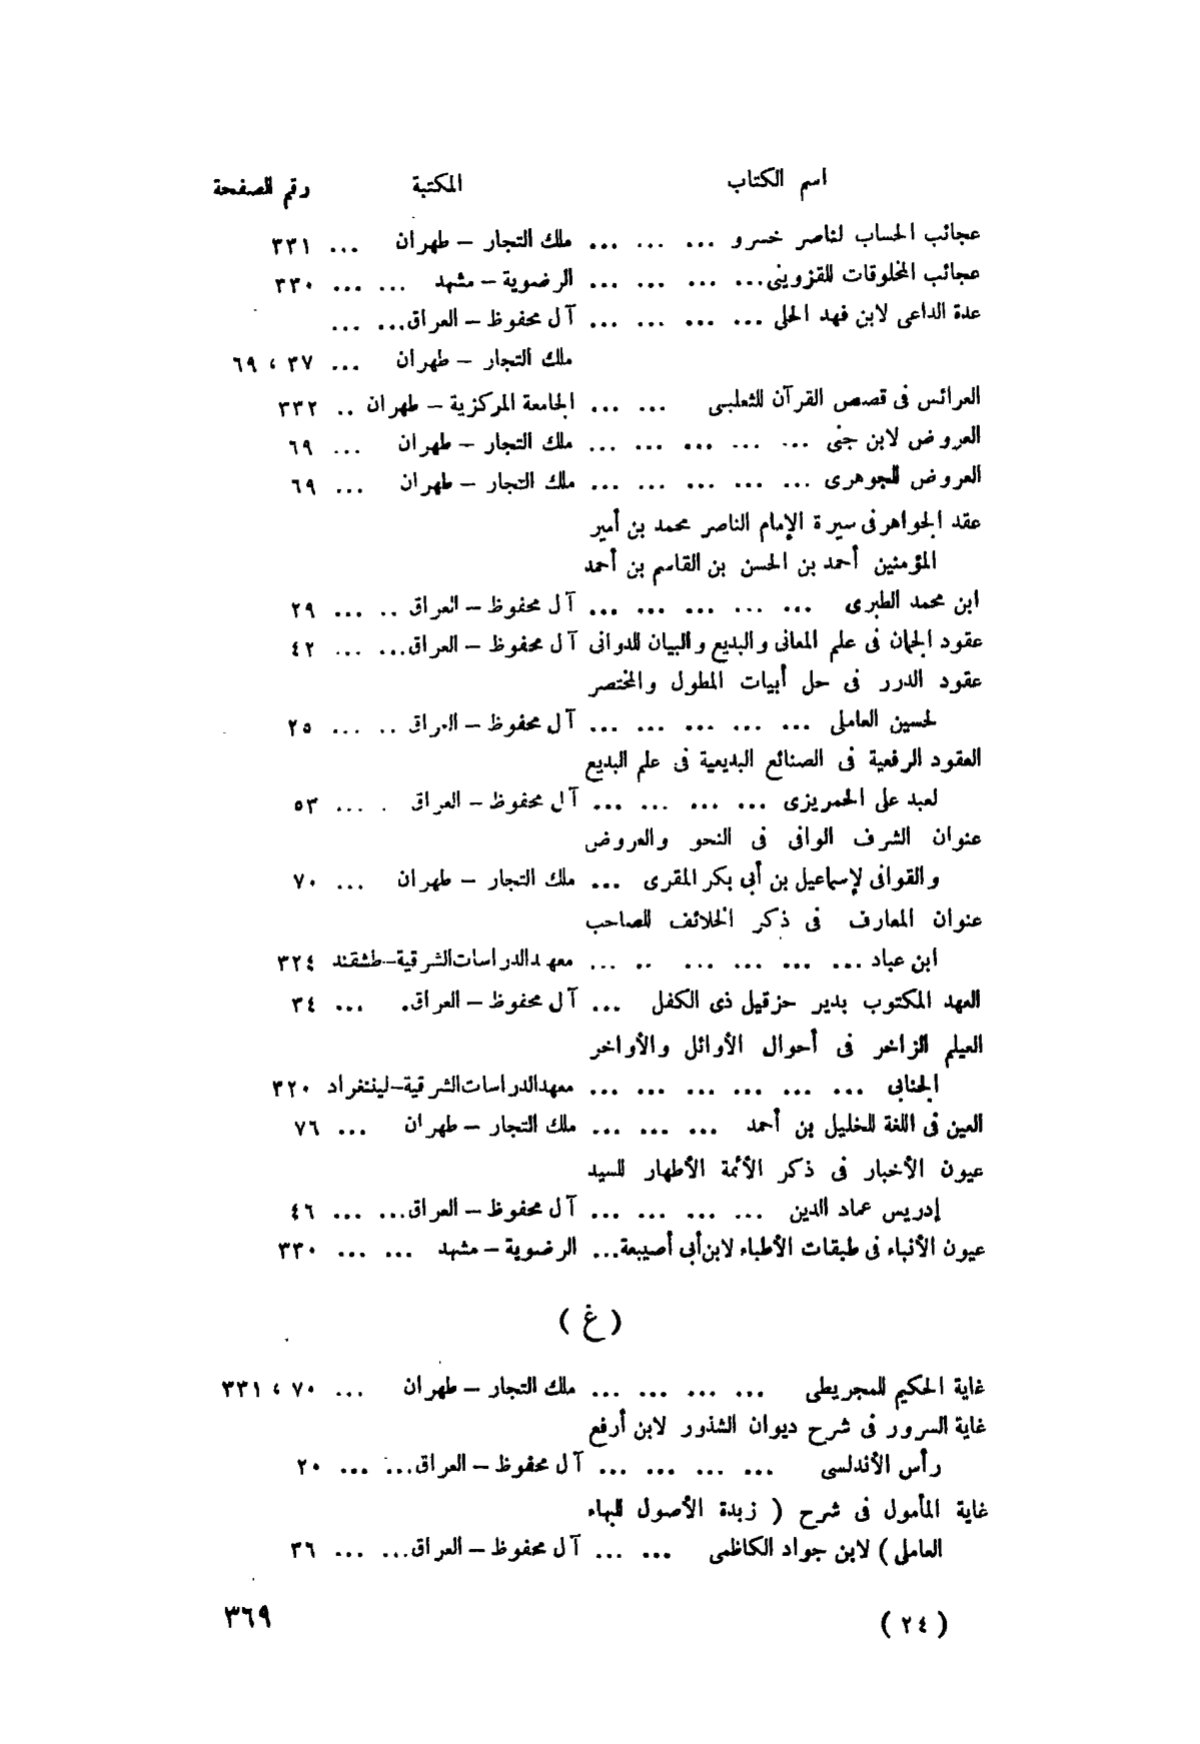 اسم الكتاب المكتبة رقم الصفحة
عجائب الحساب لناصر خسرو ... ... ... ملك التجار – طهران ... ٣٣١
عجائب المخلوقات للقزويني... ... ... ... الرضوية – مشهد ... ... ٣٣٠
عدة الداعى لابن فهد الحلى ... ... ... ... آل محفوظ – العراق... ...
ملك التجار – طهران ... ٣٧ ، ٦٩
العرائس فى قصص القرآن للثعلبى ... ... الجامعة المركزية – طهران .. ٣٣٢
العروض لابن جنى ... ... ... ... ... ملك التجار – طهران ... ٦٩
العروض للجوهرى ... ... ... ... ... ملك التجار – طهران ... ٦٩
عقد الجواهر فى سيرة الإمام الناصر محمد بن أمير
المؤمنين أحمد بن الحسن بن القاسم بن أحمد
ابن محمد الطبرى ... ... ... ... ... آل محفوظ – العراق .. ... ٢٩
عقود الجمان فى علم المعانى والبديع والبيان للدوانى آل محفوظ – العراق... ... ٤٢
عقود الدرر فى حل أبيات المطول والمختصر
لحسين العاملى ... ... ... ... ... آل محفوظ – العراق .. ... ٢٥
العقود الرفعية فى الصنائع البديعية فى علم البديع
لعبد على الحمريزى ... ... ... ... آل محفوظ – العراق . ... ٥٣
عنوان الشرف الوافى فى النحو والعروض
والقوافى لإسماعيل بن أبى بكر المقرى ... ملك التجار – طهران ... ٧٠
عنوان المعارف فى ذكر الخلائف للصاحب
ابن عباد ... ... ... ... .. ... معهد الدراسات الشرقية–طشقند ٣٢٤
العهد المكتوب بدير حزقيل ذى الكفل ... آل محفوظ – العراق. ... ٣٤
العيلم الزاخر فى أحوال الأوائل والأواخر
الجنابى ... ... ... ... ... ... معهد الدراسات الشرقية–ليننغراد ٣٢٠
العين فى اللغة للخليل بن أحمد ... ... ... ملك التجار – طهران ... ٧٦
عيون الأخبار فى ذكر الأئمة الأطهار للسيد
إدريس عماد الدين ... ... ... ... آل محفوظ – العراق... ... ٤٦
عيون الأنباء فى طبقات الأطباء لابن أبى أصيبعة... الرضوية – مشهد ... ... ٣٣٠
( غ )
غاية الحكيم للمجريطى ... ... ... ... ملك التجار – طهران ... ٧٠ ، ٣٣١
غاية السرور فى شرح ديوان الشذور لابن أرفع
رأس الأندلسى ... ... ... ... آل محفوظ – العراق... ... ٢٠
غاية المأمول فى شرح ( زبدة الأصول للبهاء
العاملى ) لابن جواد الكاظمى ... ... آل محفوظ – العراق... ... ٣٦
( ٢٤ ) ٣٦٩